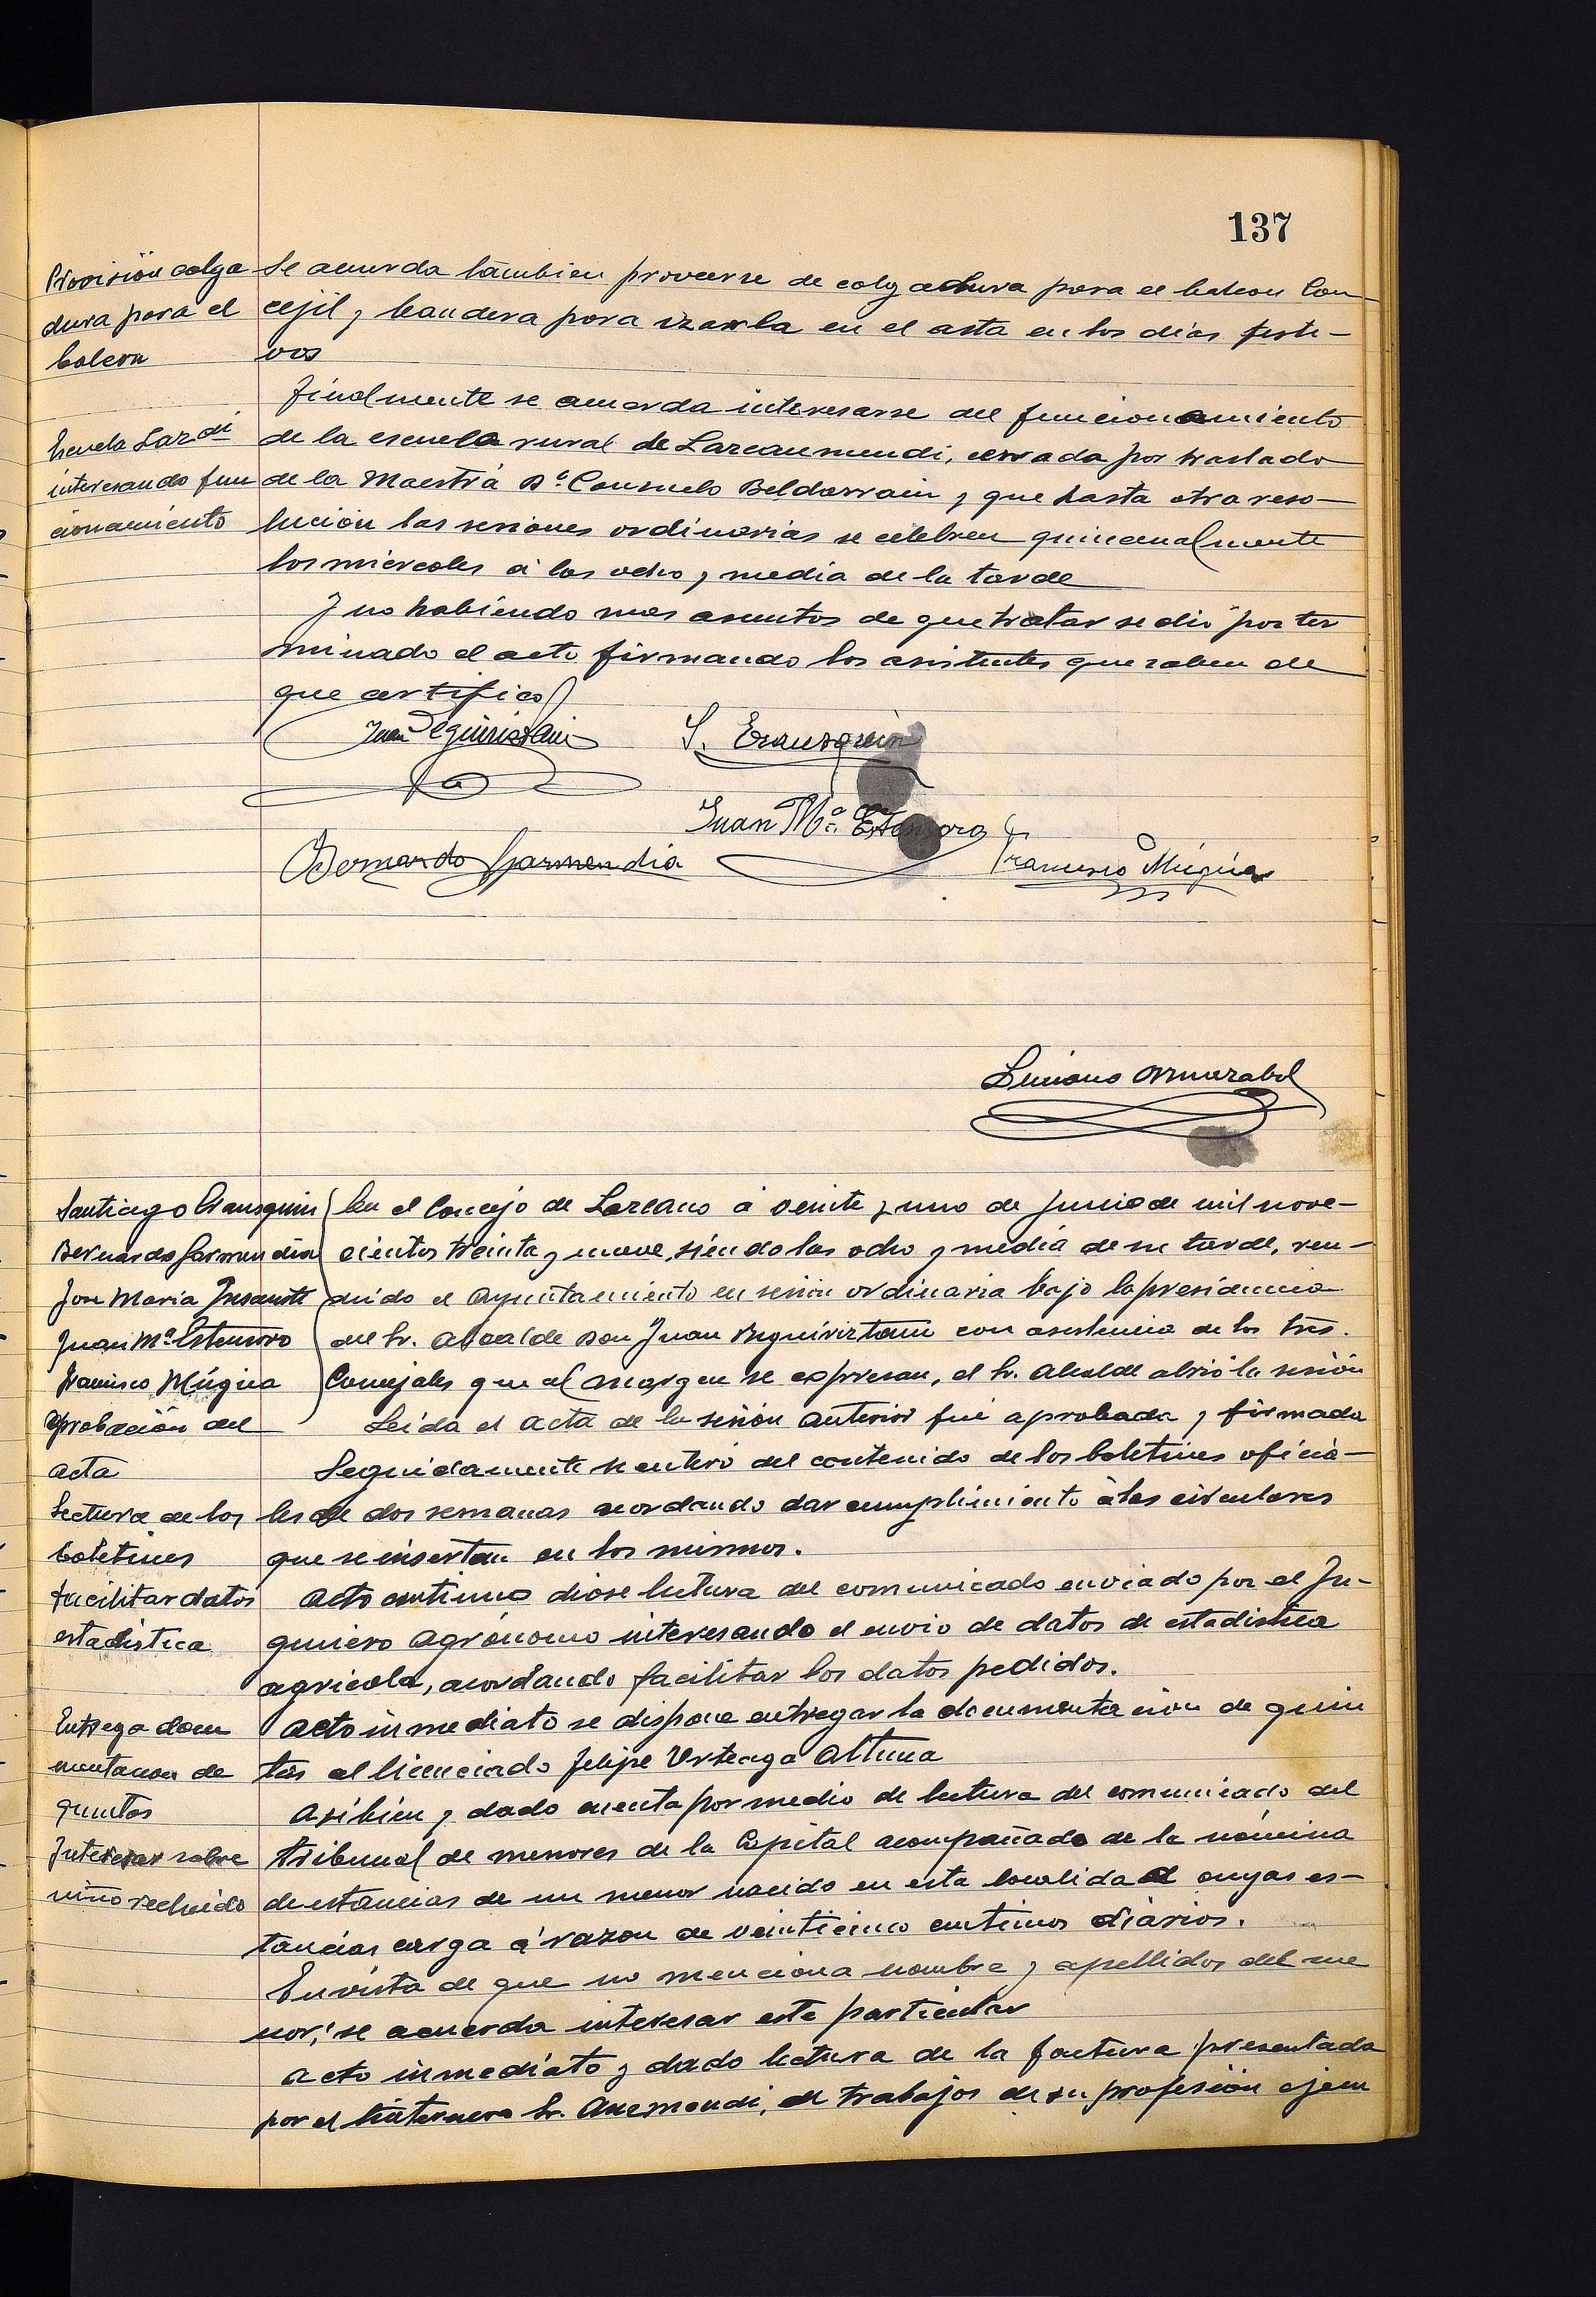 137
Provisión colga
dura para el
balcon
Se acuerda tambien proveerse de colgadura para el balcon Con-
cejil y bandera para izarla en el asta en los dias festi-
vos
Finalmente se acuerda interesarse del funcionamiento
Escuela Laz.di
interesando fun
cionamiento
de la escuela rural de Lazcaumendi, cerrada por traslado
de la Maestra Dª. Consuelo Beldarrain y que hasta otra reso-
lución las sesiones ordinarias se celebren quincenalmente
los miercoles á las ocho y media de la tarde
Y no habiendo mas asuntos de que tratar se dió por ter
minado el acto firmando los asistentes que saben de
que certifico
Juan Eguiriztain
S. Erausquin
Juan Mª. Estensoro
Bernardo Garmendia
Francisco Múgica
Luciano
Santiago Erausquin
Bernardo Garmendia
Jose Maria
Juan Mª. Estensoro
Francisco Múgica
En el Concejo de Lazcano á veinte y uno de Junio de mil nove-
cientos treinta y nueve, siendo las ocho y media de su tarde, reu-
nido el Ayuntamiento en sesión ordinaria bajo la presidencia
del Sr. Alcalde Don Juan Eguiriztain con asistencia de los Sres.
Concejales que al margen se expresan, el Sr. Alcalde abrió la sesión
Aprobación del
acta
Leida el acta de la sesión anterior fué aprobada y firmada
Lectura de los
boletines
Seguidamente se enteró del contenido de los boletines oficia-
les de dos semanas acordando dar cumplimiento á las circulares
que se insertan en los mismos.
Facilitar datos
estadistica
Acto continuo dióse lectura del comunicado enviado por el In-
geniero Agrónomo interesando el envio de datos de estadistica
agricola, acordando facilitar los datos pedidos.
Entrega docu
mentacion de
quintas
Acto inmediato se dispone entregar la documentación de quin
tas al licenciado Felipe Urteaga Altuna
Interesar sobre
niño recluido
Asibien y dado cuenta por medio de lectura del comunicado del
tribunal de menores de la Capital acompañado de la nómina
de estancias de un menor nacido en esta localidad cuyas es-
tancias carga á razon de veinticinco centimos diarios.
En vista de que no menciona nombre y apellidos del me
nor, se acuerda interesar este particular
Acto inmediato y dado lectura de la factura presentada
por el Sr. de trabajos de su profesión ejecu